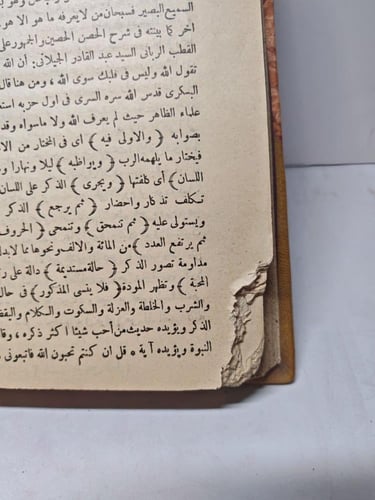 السميع البصير فسبحان من لا يعرفه ما هو الا هو
آخر كما بينته فى شرح الحصن الحصين والجمهور على
القطب الربانى السيد عبد القادر الجيلانى: أن الله
تقول الله وليس فى قلبك سوى الله، ومن هنا قال
البكرى قدس الله سره السرى فى اول حزبه استغ
علماء الظاهر حيث لم يعرف الله ولا ماسواه وقد
بصوابه ﴿ والاولى فيه ﴾ أى فى المختار من الا
فيختار ما يلهمه الرب ﴿ ويواظبه ﴾ ليلا ونهارا و
اللسان ﴾ أى كلفتها ﴿ ويجرى ﴾ الذكر على اللسان
تكلف تذكار واحضار ﴿ ثم يرجع ﴾ الذكر
ويستولى عليه ﴿ ثم تنمحق ﴾ وتنمحى ﴿ الحروف
ثم يرتفع العدد ﴾ من المائة والالف ونحوها مما لابد
مداومة تصور الذكر ﴿ حالة مستديمة ﴾ دالة على
المحبة ﴾ وتظهر المودة ﴿ فلا ينسى المذكور ﴾ فى حال
والشرب والخلطة والعزلة والسكوت والكلام واليقظ
الذكر ويؤيده حديث من أحب شيئا اكثر ذكره، وقا
النبوة ويؤيده آية * قل ان كنتم تحبون الله فاتبعونى